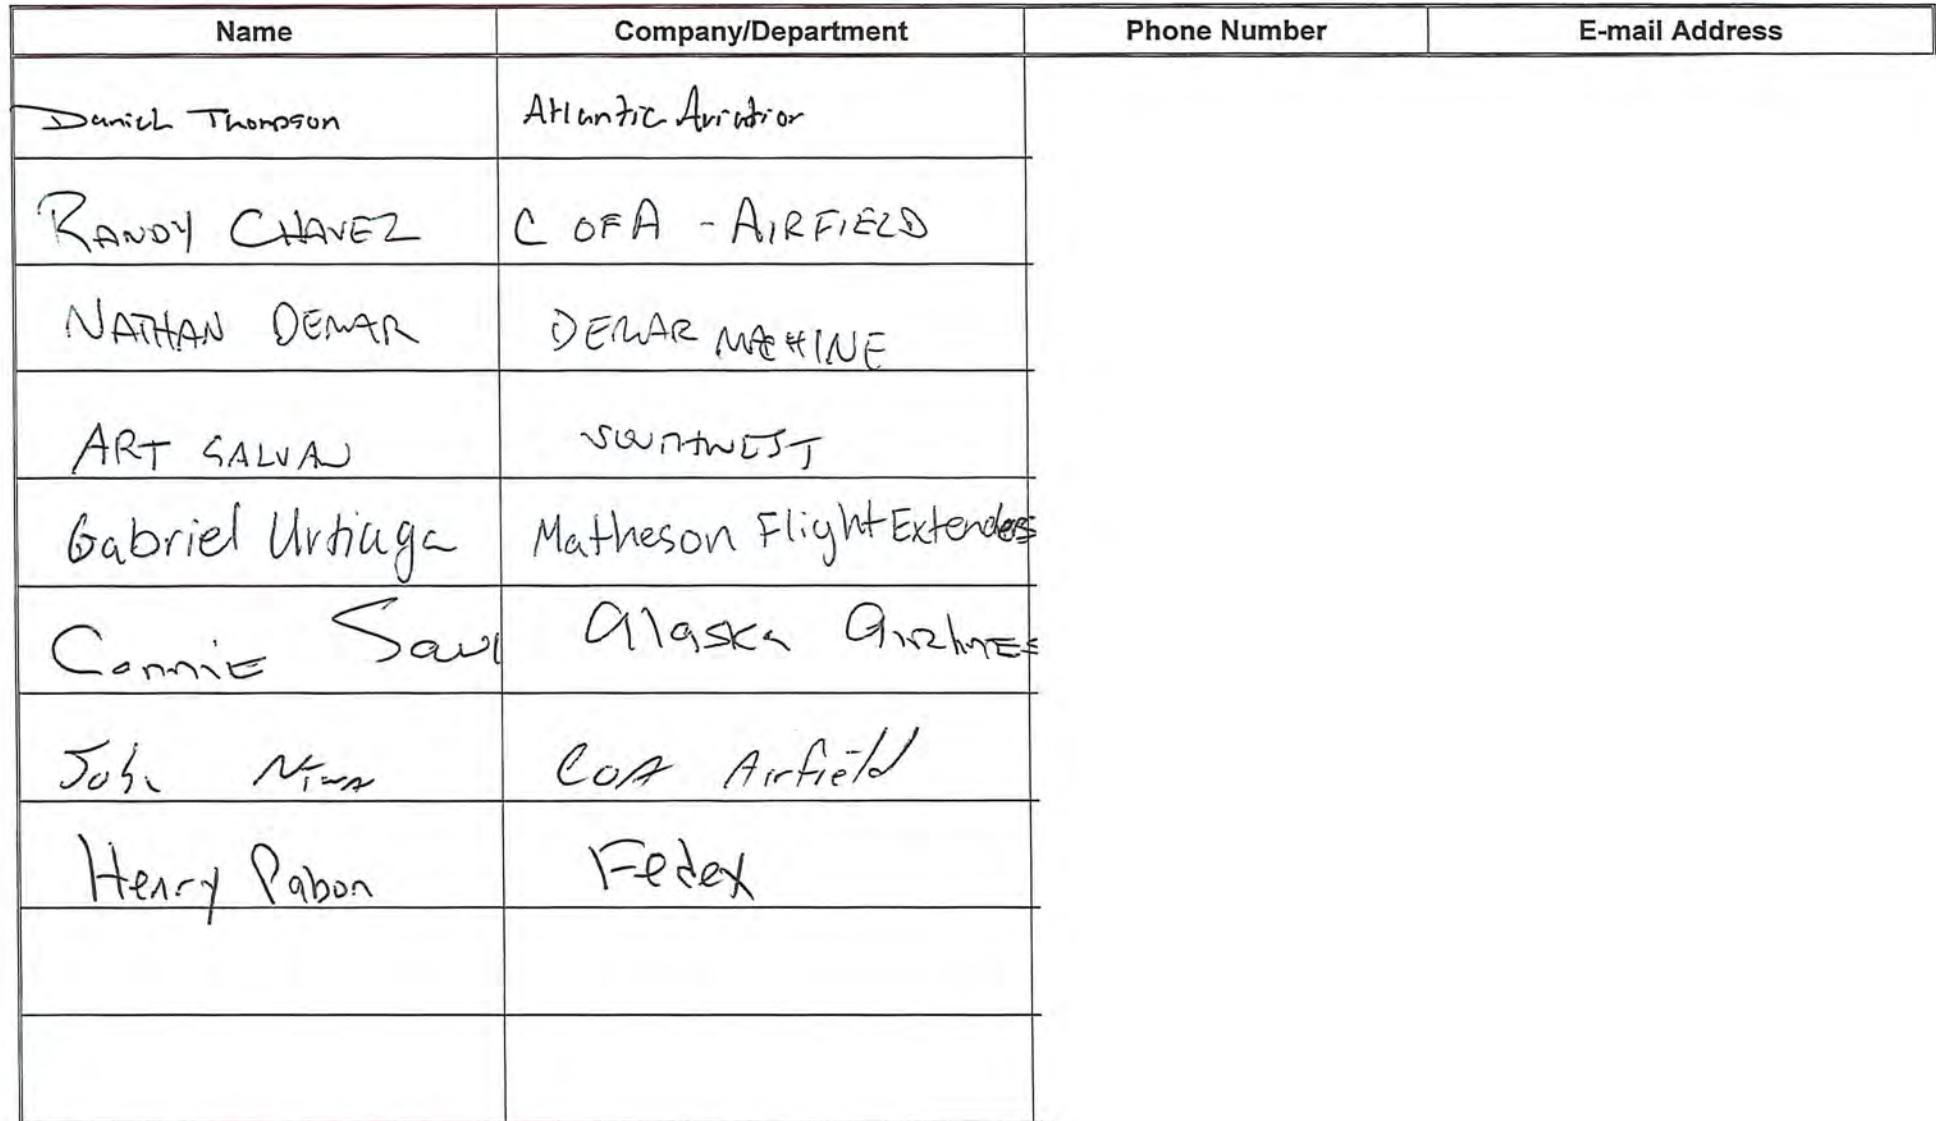 Name Company/Department Phone Number E-mail Address
Daniel Thompson Atlantic Aviation
RANDY CHAVEZ C OF A - AIRFIELD
NATHAN DEMAR DEMAR MACHINE
ART GALVAN SOUTHWEST
Gabriel Urtiaga Matheson Flight Extenders
Connie Savi Alaska Airlines
John COA Airfield
Henry Pabon Fedex